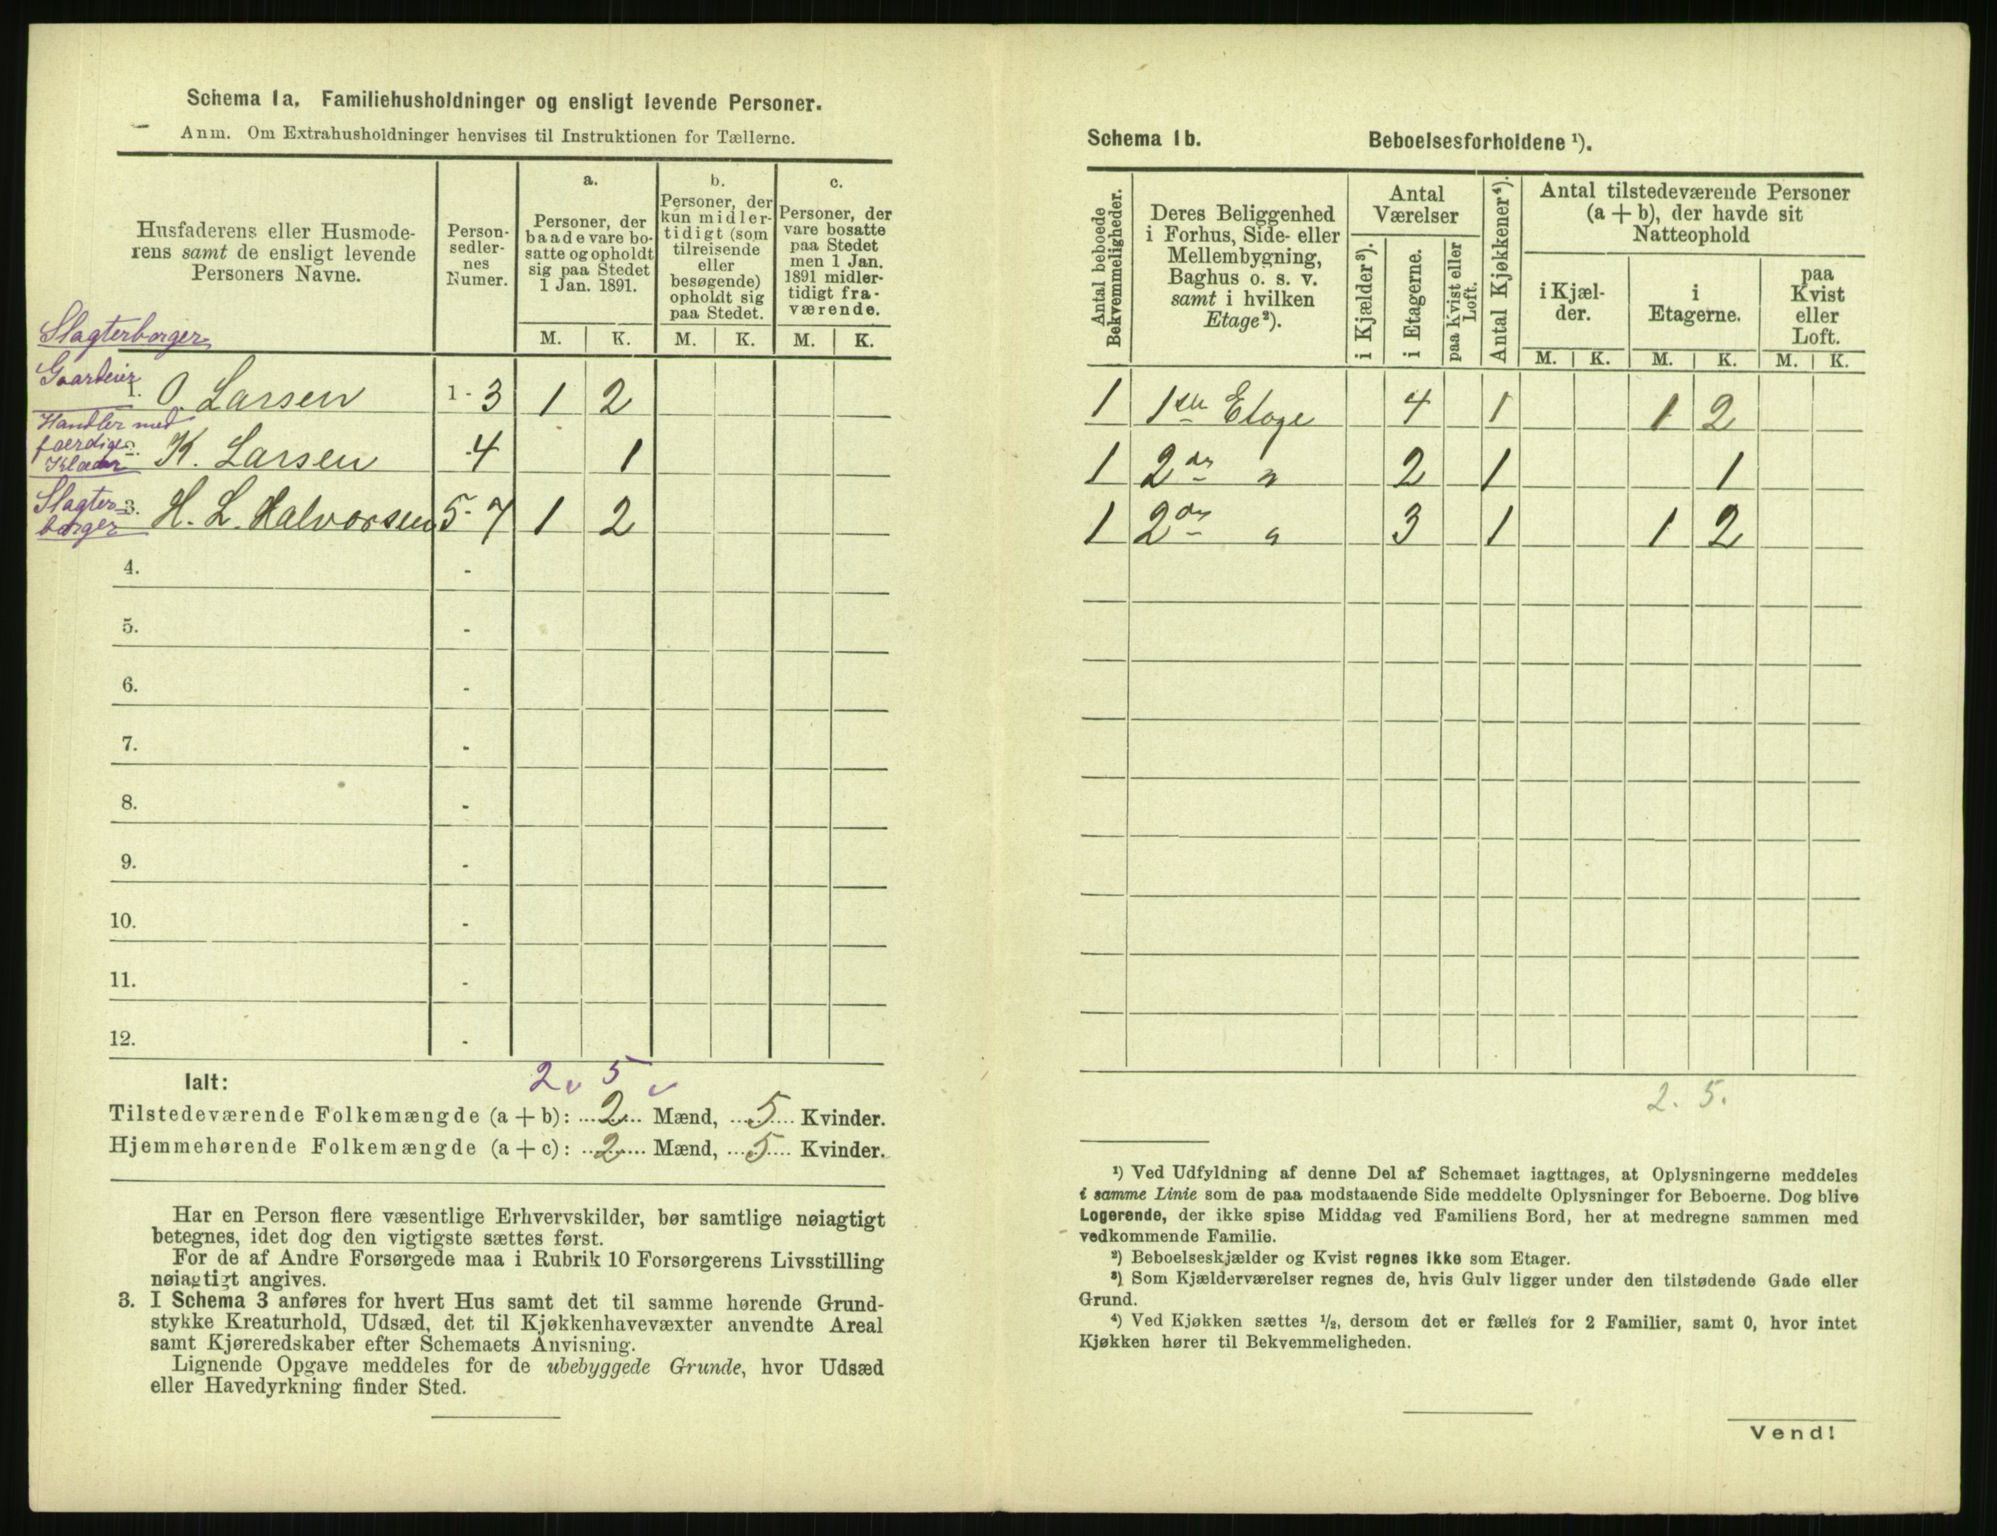 Schema 1a. Familiehusholdninger og ensligt levende Personer.
Anm. Om Extrahusholdninger henvises til Instruktionen for Tællerne.
Husfaderens eller Husmode-
rens samt de ensligt levende
Personers Navne.
Person-
sedler-
nes
Numer.
a.
Personer, der
baade vare bo-
satte og opholdt
sig paa Stedet
1 Jan. 1891.
b.
Personer, der
kun midler-
tidigt (som
tilreisende
eller
besøgende)
opholdt sig
paa Stedet.
c.
Personer, der
vare bosatte
paa Stedet
men 1 Jan.
1891 midler-
tidigt fra-
værende.
M. K. M. K. M. K.
Slagterborger
Gaardeier
1. O. Larsen 1-3 1 2
Handler med
færdige
Klæder
K. Larsen 4 1
Slagter-
borger
3. H. L. Halvorsen 5-7 1 2
4. -
5. -
6. -
7. -
8. -
9. -
10. -
11. -
12. -
2 5
Ialt:
Tilstedeværende Folkemængde (a + b): 2 Mænd, 5 Kvinder.
Hjemmehørende Folkemængde (a + c): 2 Mænd, 5 Kvinder.
Har en Person flere væsentlige Erhvervskilder, bør samtlige nøiagtigt
betegnes, idet dog den vigtigste sættes først.
For de af Andre Forsørgede maa i Rubrik 10 Forsørgerens Livsstilling
nøiagtigt angives.
3. I Schema 3 anføres for hvert Hus samt det til samme hørende Grund-
stykke Kreaturhold, Udsæd, det til Kjøkkenhavevæxter anvendte Areal
samt Kjøreredskaber efter Schemaets Anvisning.
Lignende Opgave meddeles for de ubebyggede Grunde, hvor Udsæd
eller Havedyrkning finder Sted.
Schema 1b. Beboelsesforholdene ¹).
Antal beboede
Bekvemmeligheder.
Deres Beliggenhed
i Forhus, Side- eller
Mellembygning,
Baghus o. s. v.
samt i hvilken
Etage²).
Antal
Værelser
i Kjælder³).
i Etagerne.
paa Kvist eller
Loft.
Antal Kjøkkener⁴).
Antal tilstedeværende Personer
(a + b), der havde sit
Natteophold
i Kjæl-
der.
i
Etagerne.
paa
Kvist
eller
Loft.
M. K. M. K. M. K.
1 1ste Etage 4 1 1 2
1 2den " 2 1 1
1 2den " 3 1 1 2
2. 5.
¹) Ved Udfyldning af denne Del af Schemaet iagttages, at Oplysningerne meddeles
i samme Linie som de paa modstaaende Side meddelte Oplysninger for Beboerne. Dog blive
Logerende, der ikke spise Middag ved Familiens Bord, her at medregne sammen med
vedkommende Familie.
²) Beboelseskjælder og Kvist regnes ikke som Etager.
³) Som Kjælderværelser regnes de, hvis Gulv ligger under den tilstødende Gade eller
Grund.
⁴) Ved Kjøkken sættes ½, dersom det er fælles for 2 Familier, samt 0, hvor intet
Kjøkken hører til Bekvemmeligheden.
Vend!